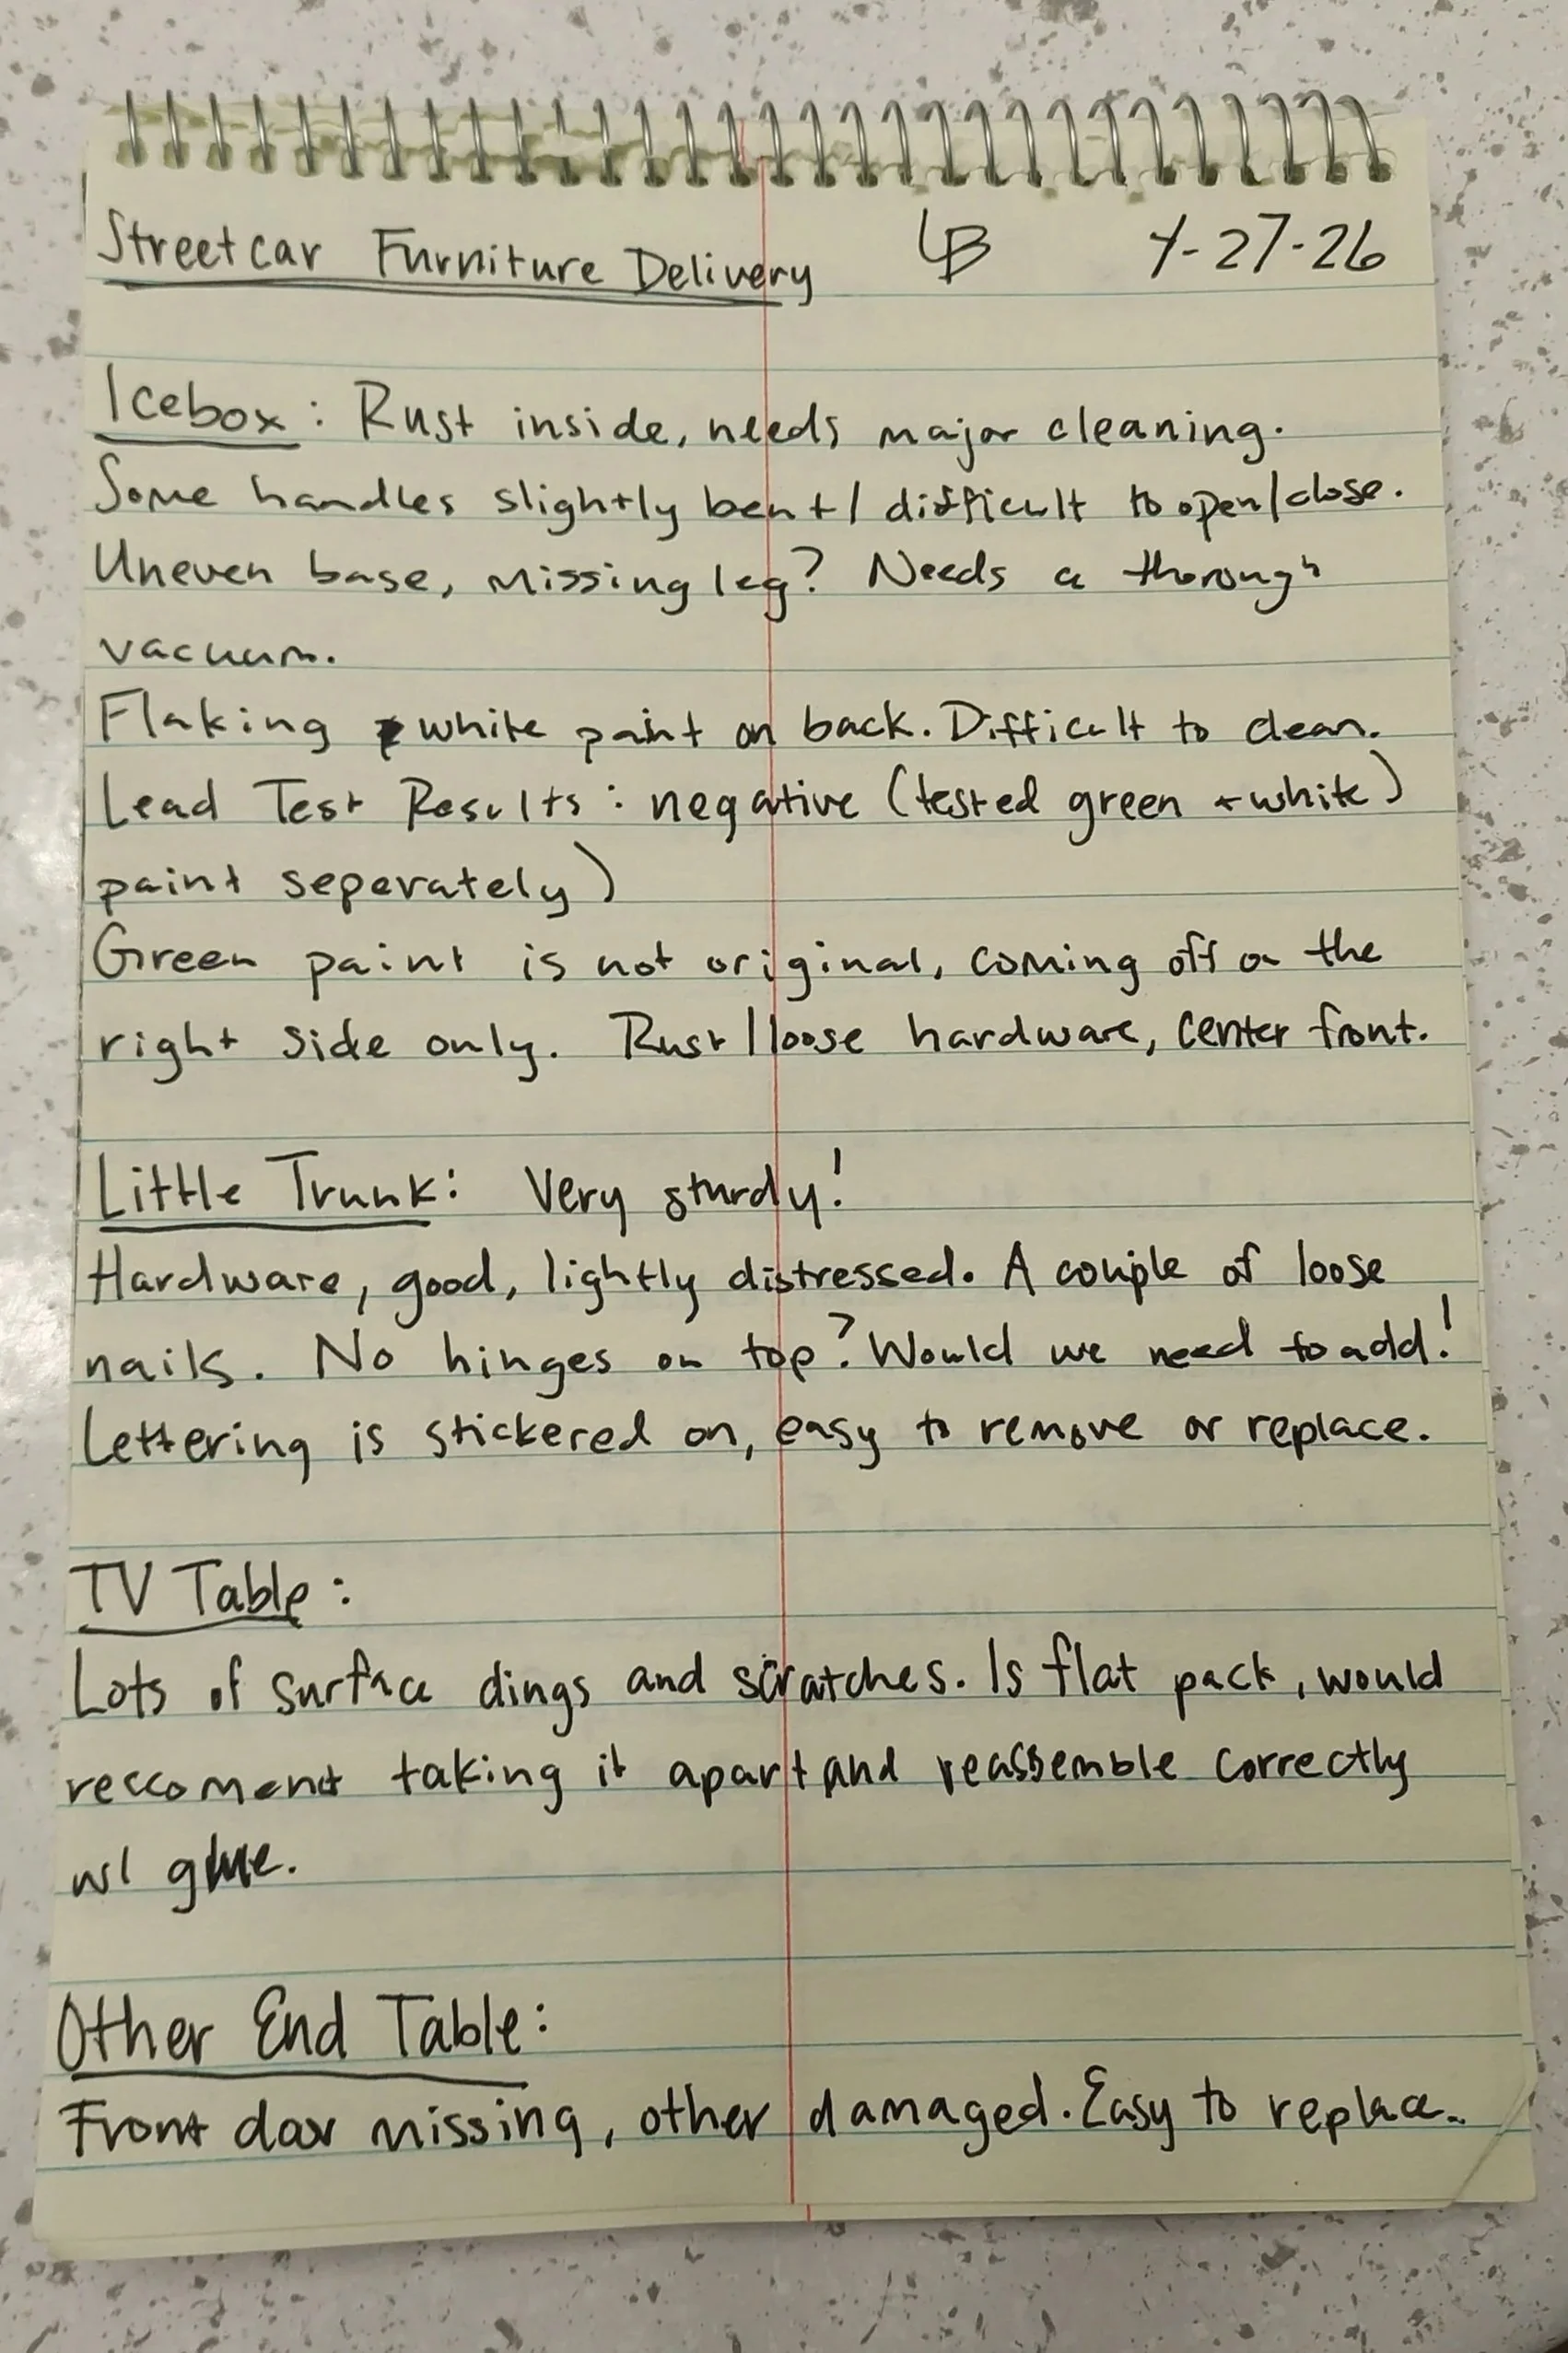 Streetcar Furniture Delivery LB 4-27-26
Icebox: Rust inside, needs major cleaning.
Some handles slightly bent/difficult to open/close.
Uneven base, missing leg? Needs a thorough
vacuum.
Flaking white paint on back. Difficult to clean.
Lead Test Results: negative (tested green + white)
paint seperately)
Green paint is not original, coming off on the
right side only. Rust/loose hardware, center front.
Little Trunk: Very sturdy!
Hardware, good, lightly distressed. A couple of loose
nails. No hinges on top? Would we need to add!
Lettering is stickered on, easy to remove or replace.
TV Table:
Lots of surface dings and scratches. Is flat pack, would
reccomend taking it apart and reassemble correctly
w/ glue.
Other End Table:
Front door missing, other damaged. Easy to replace.